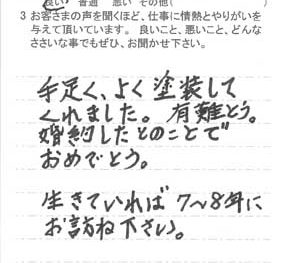 良い 普通 悪い その他(
3 お客さまの声を聞くほど、仕事に情熱とやりがいを
与えて頂いています。 良いこと、悪いこと、どんな
ささいな事でもぜひ、お聞かせ下さい。
手早く、よく塗装して
くれました。有難とう。
婚約したとのことで
おめでとう。
生きていれば7〜8年に
お訪ね下さい。